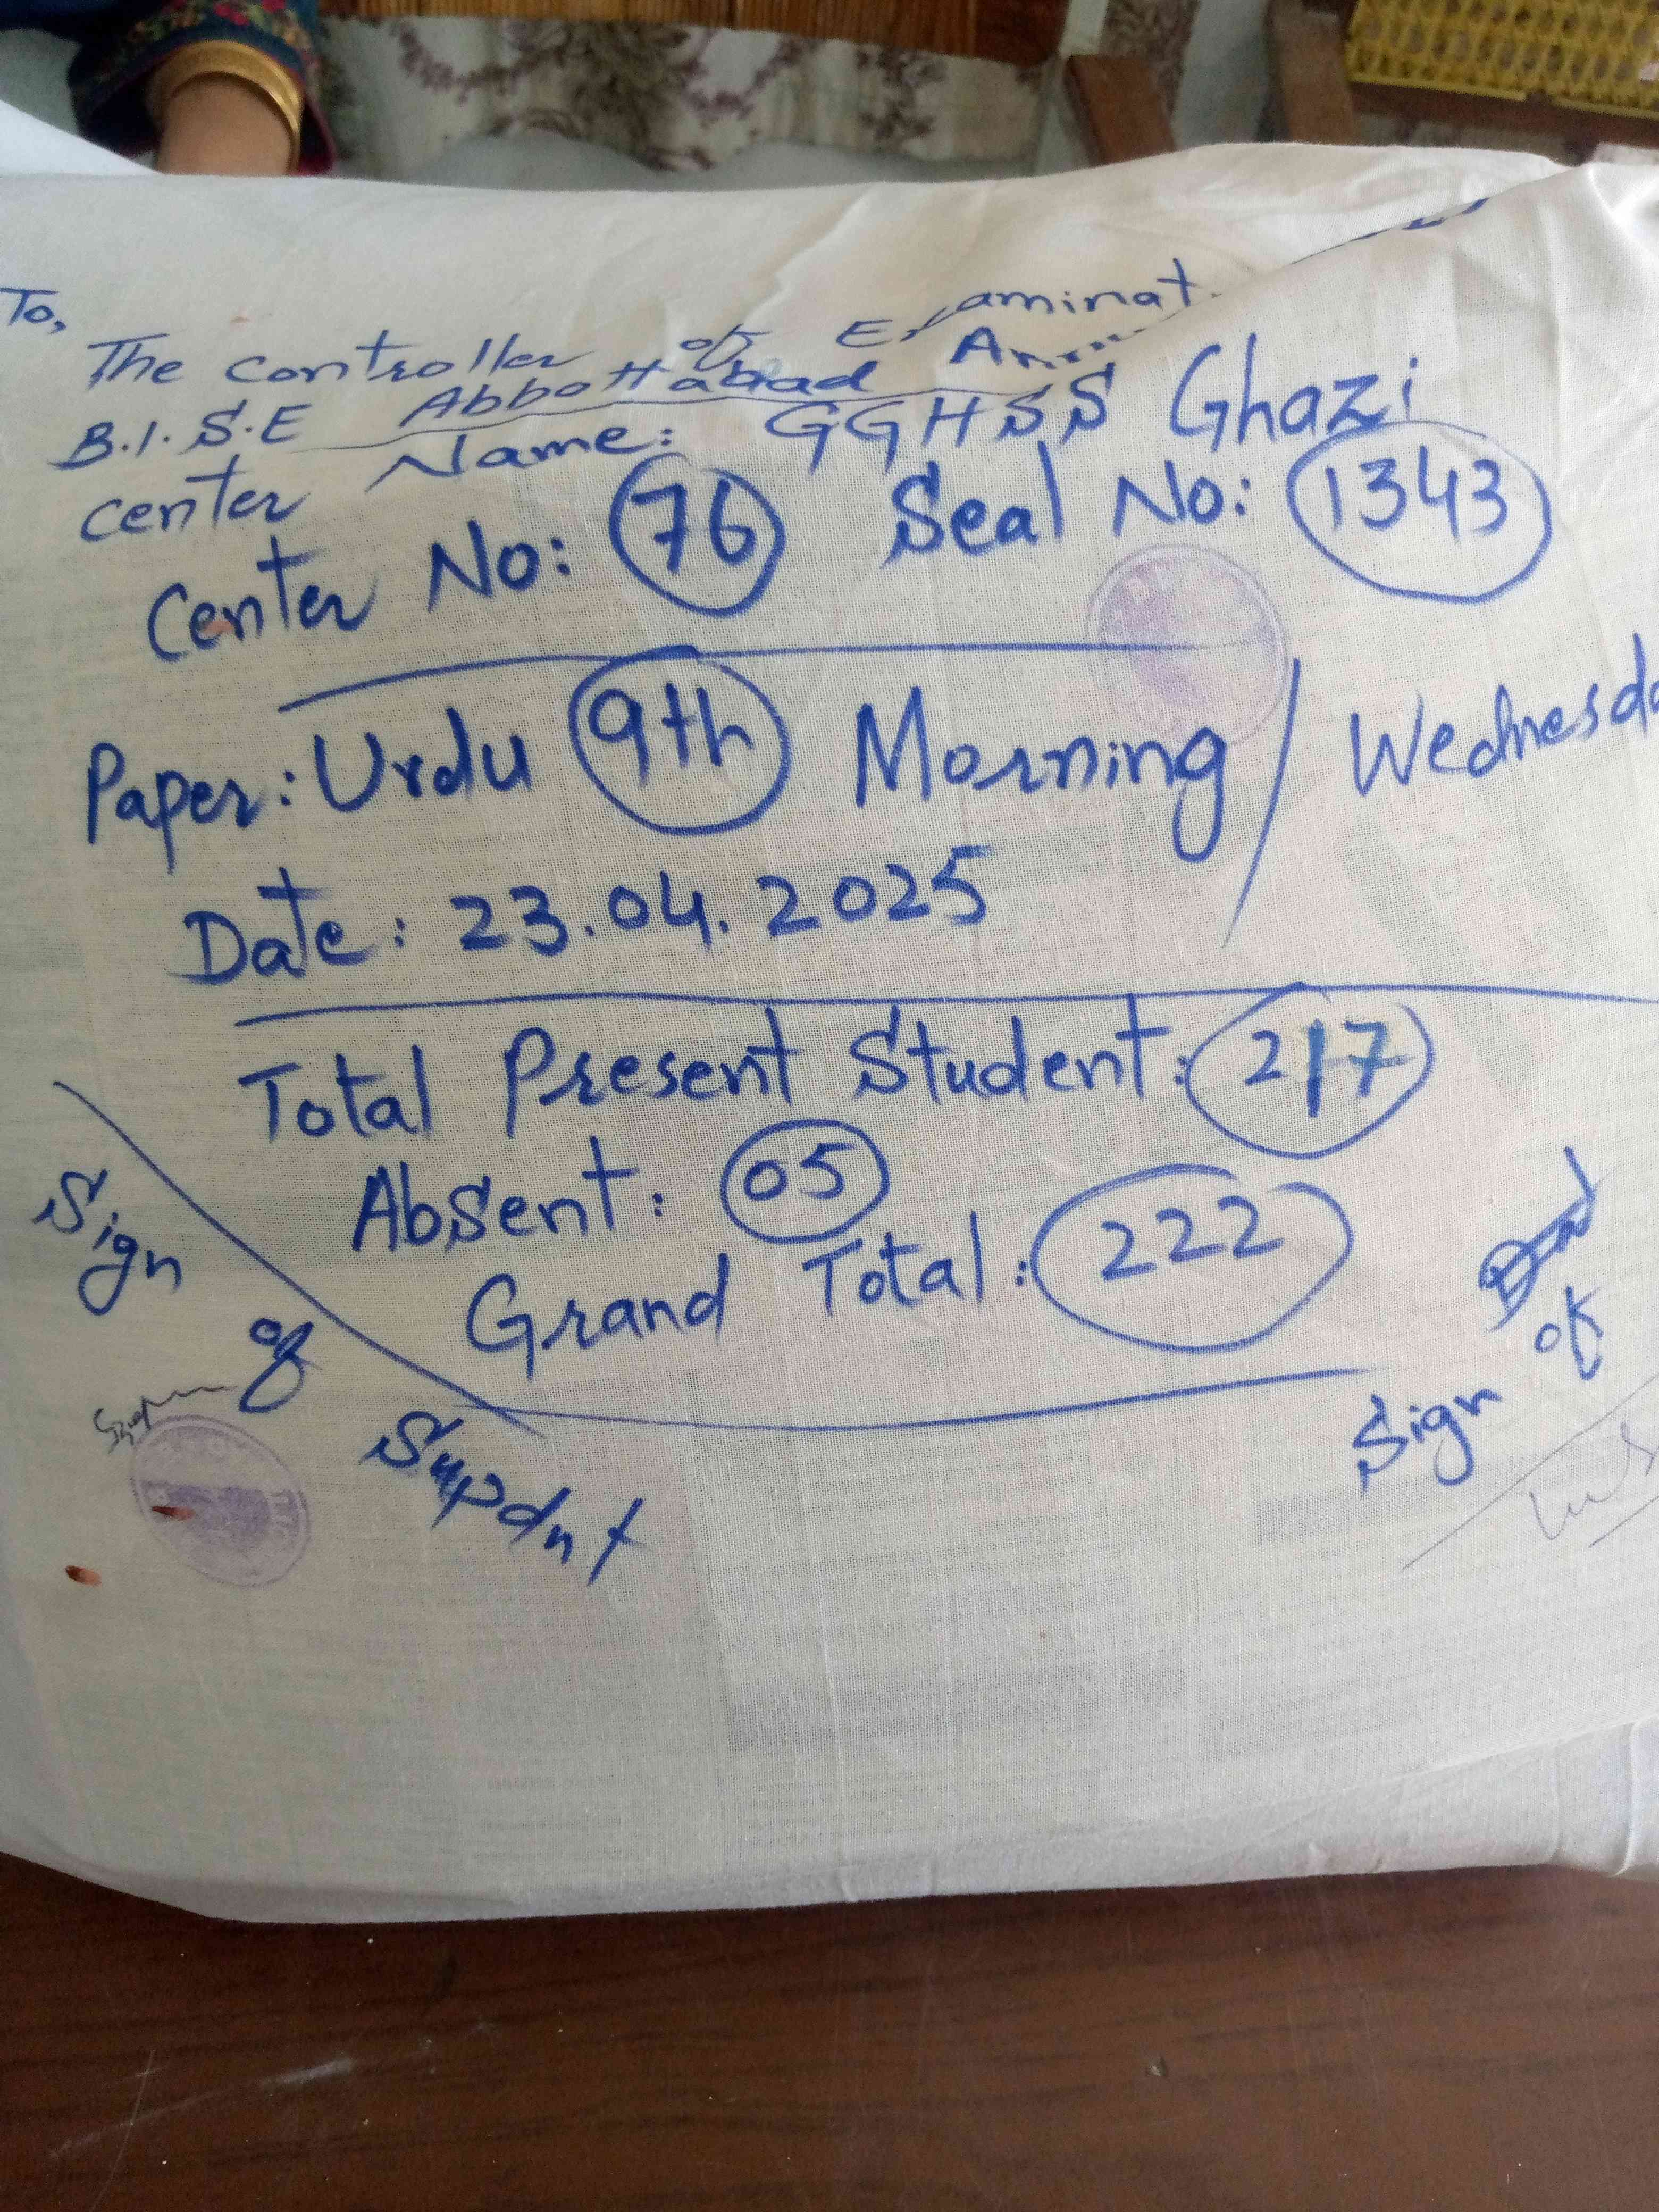 To,
The Controller of Examinat
B.I.S.E Abbottabad
Center Name: GGHSS Ghazi
Center No: 76 Seal No: 1343
Paper: Urdu 9th Morning / Wednesda
Date: 23.04.2025
Total Present Student: 217
Absent: 05
Grand Total: 222
Sign of Supdnt
Sign of